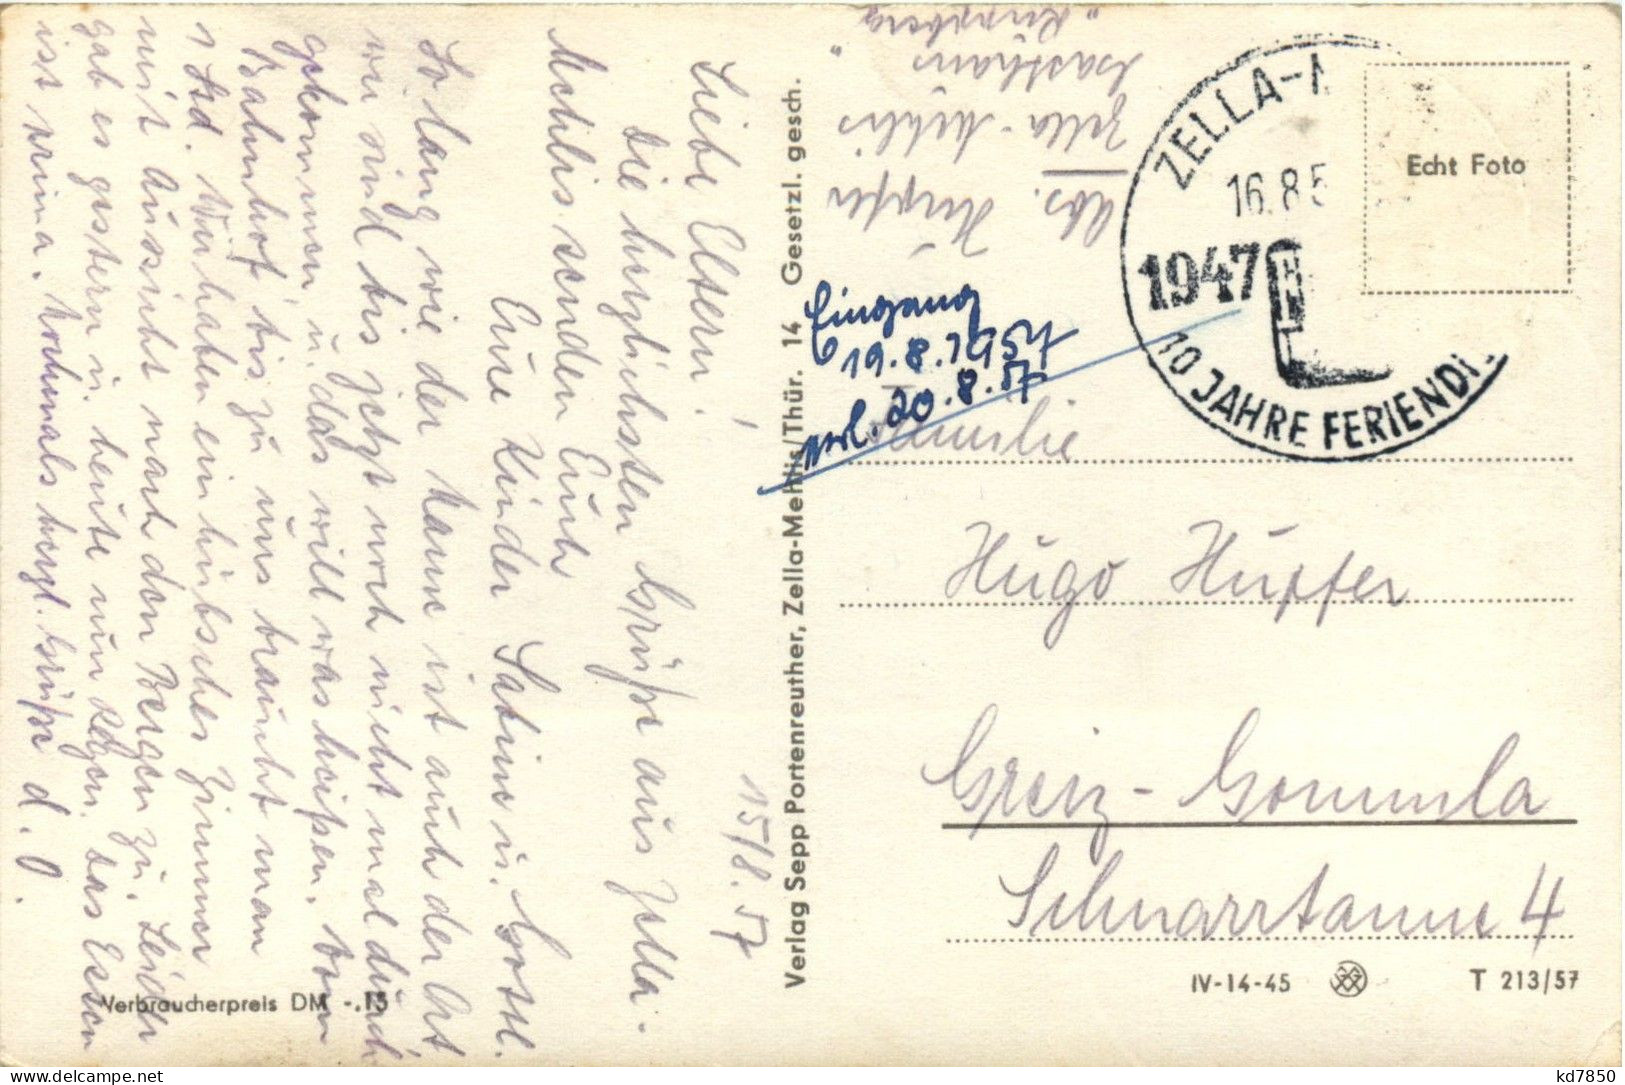 15/8. 57
Liebe Eltern!
Die herzlichsten Grüße aus Zella-
Mehlis senden Euch
Eure Kinder Sabine u. Gottl.
So lang wie der Name ist auch der Ort
wir sind bis jetzt noch nicht mal durch
gekommen u. das will was heißen. Vom
Bahnhof bis zu uns braucht man
1 Std. Wir haben ein hübsches Zimmer
mit Aussicht nach den Bergen zu. Leider
gab es gestern u. heute nur Regen. Das Essen
ist prima. Nochmals herzl. Grüße d. O.
Verbraucherpreis DM -.15
Verlag Sepp Portenreuther, Zella-Mehlis/Thür. 14 Gesetzl. gesch.
Abs. Hupfer
Zella-Mehlis
Gasthaus
"Ruppberg"
Eingang
19.8.1957
20.8.57
ZELLA-M
16.8.5
1947
10 JAHRE FERIENDI
Echt Foto
Familie
Hugo Hupfer
Greiz-Gommla
Schnarrtanne 4
IV-14-45
T 213/57
kd7850